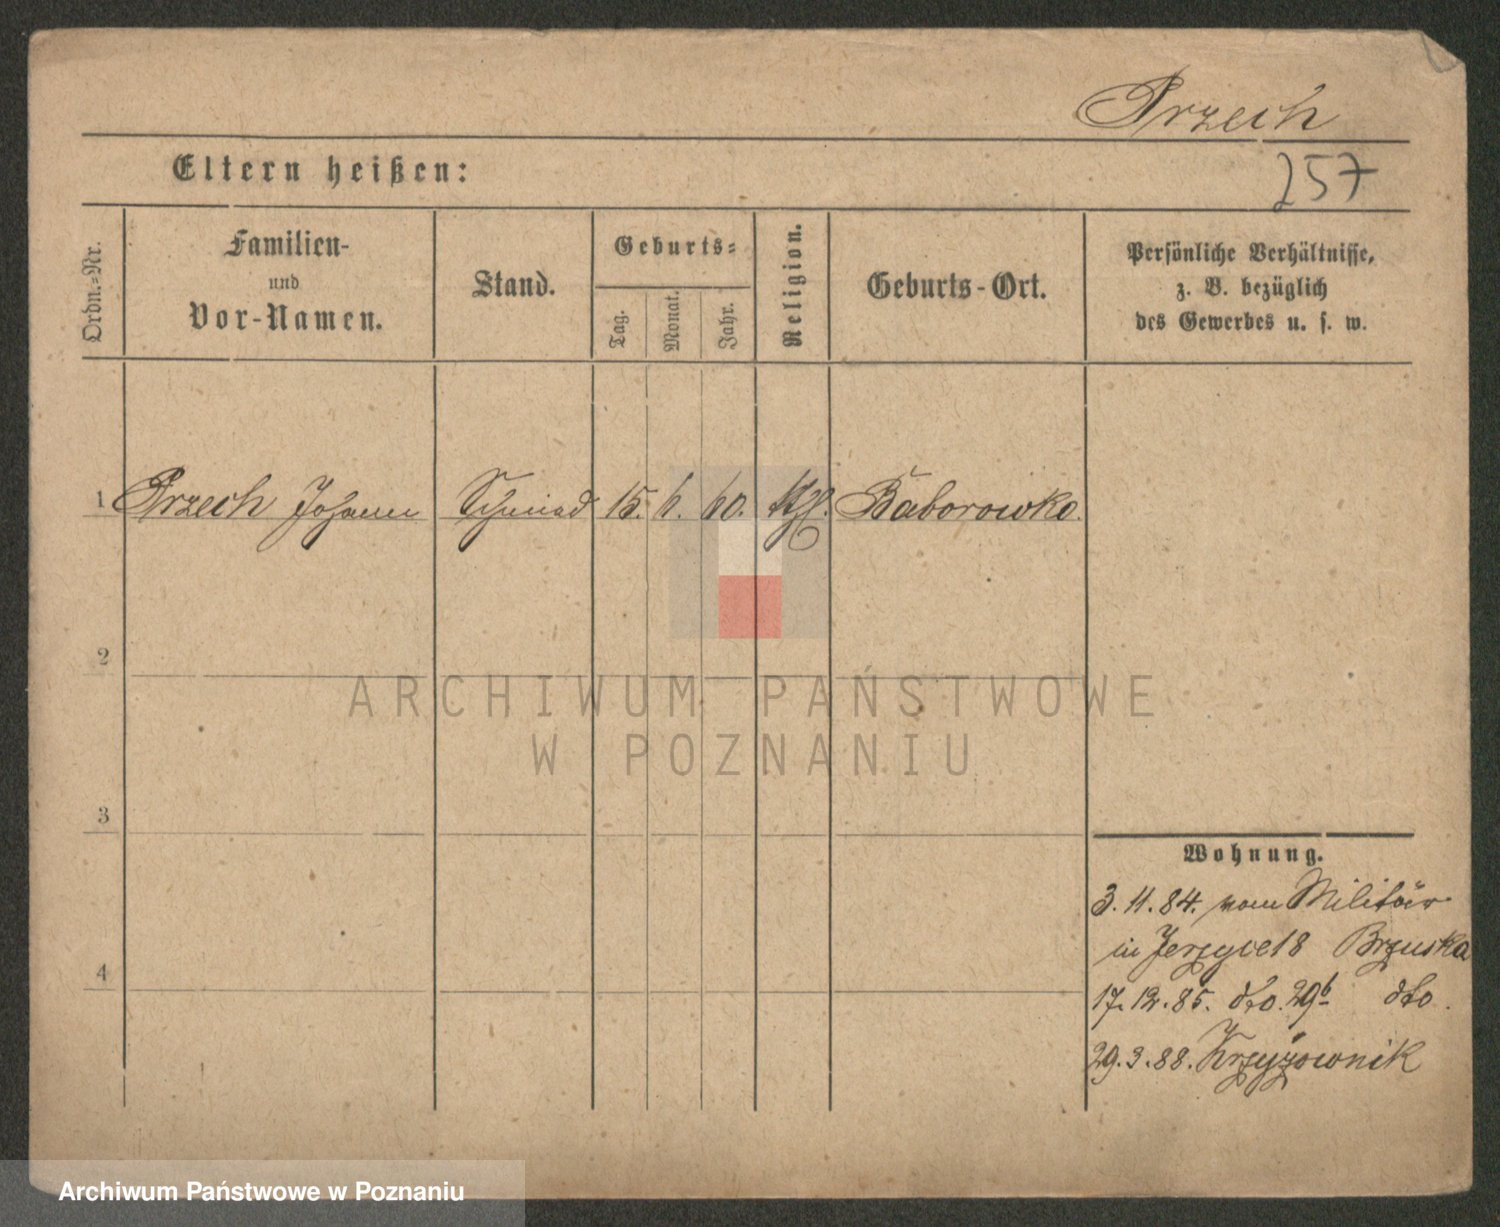 Przech
Eltern heißen:
257
Ordn.-Nr.
Familien-
und
Vor-Namen.
Stand.
Geburts-
Tag.
Monat.
Jahr.
Religion.
Geburts-Ort.
Persönliche Verhältnisse,
z. B. bezüglich
des Gewerbes u. s. w.
1 Przech Johann Schmied 15. 6. 60. kth. Baborowko.
2
ARCHIWUM PAŃSTWOWE
W POZNANIU
3
Wohnung.
3. 11. 84. vom Militär
in Jerzyce 18 Brzuska
4
17. 12. 85. dto. 29b dto.
29. 3. 88. Krzyżownik
Archiwum Państwowe w Poznaniu